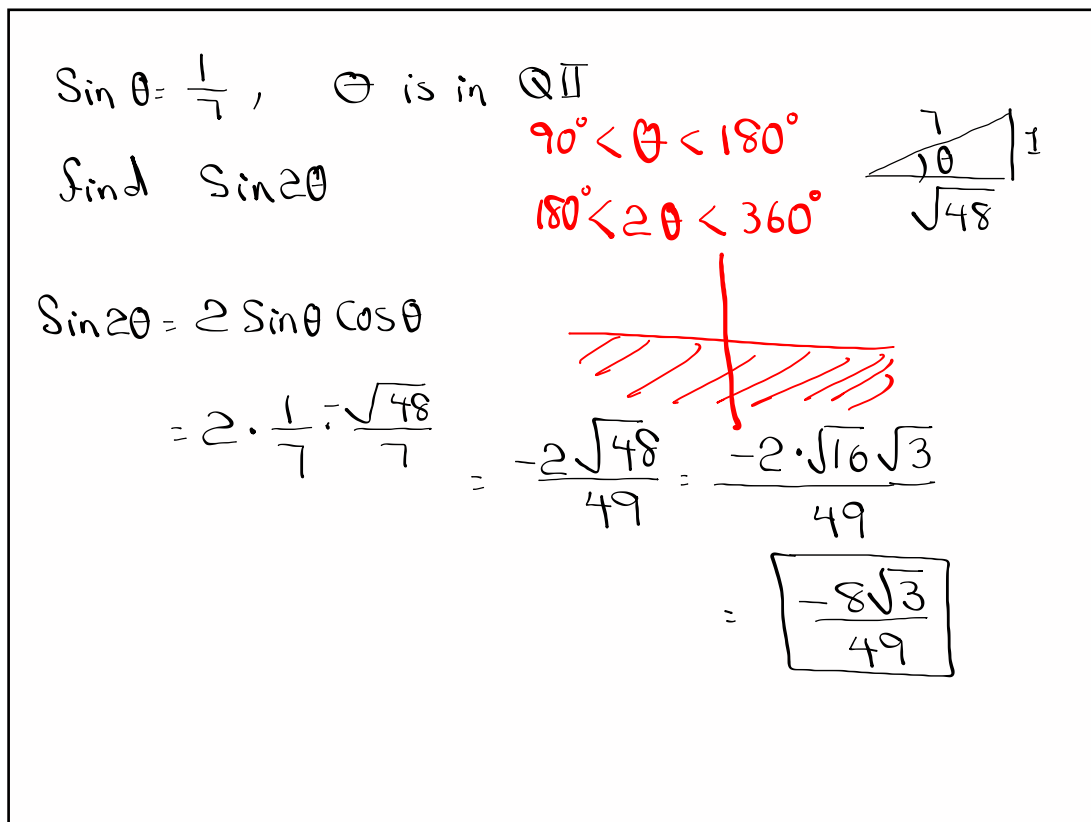 Sin θ = 1/7 , θ is in QII
90° < θ < 180°
find Sin2θ
180° < 2θ < 360°
7
θ
1
√48
Sin2θ = 2 Sinθ Cosθ
= 2 · 1/7 · -√48/7 = -2√48/49 = -2·√16 √3/49
= -8√3/49